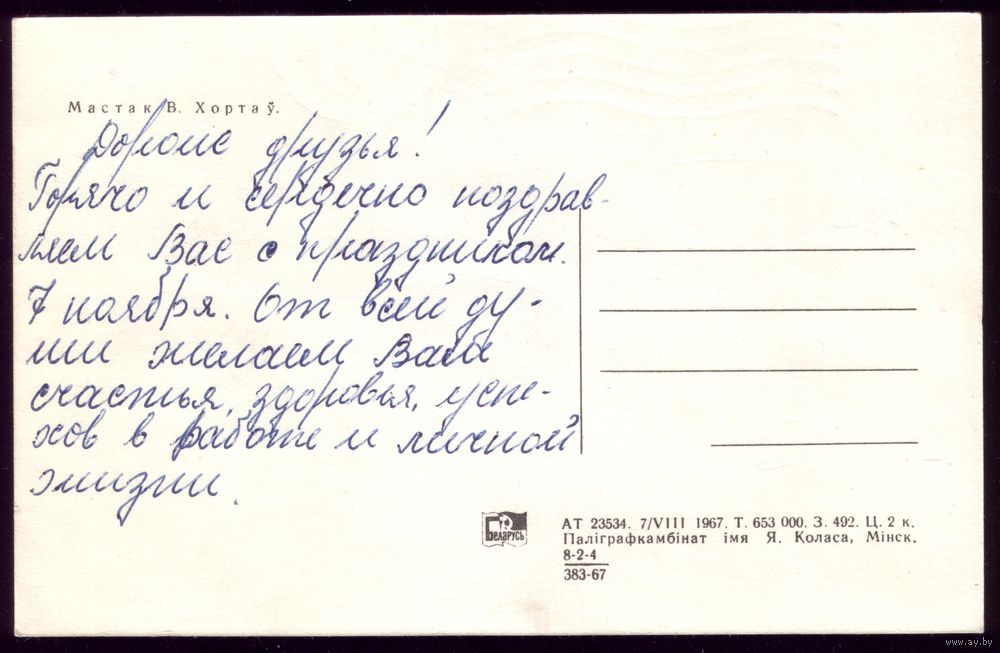 Мастак В. Хортаў.
Дорогие друзья!
Горячо и сердечно поздрав-
ляем Вас с праздником
7 ноября. От всей ду-
ши желаем Вам
счастья, здоровья, успе-
хов в работе и личной
жизни.
Беларусь
АТ 23534. 7/VIII 1967. Т. 653 000. З. 492. Ц. 2 к.
Паліграфкамбінат імя Я. Коласа, Мінск.
8-2-4
383-67
www.ay.by